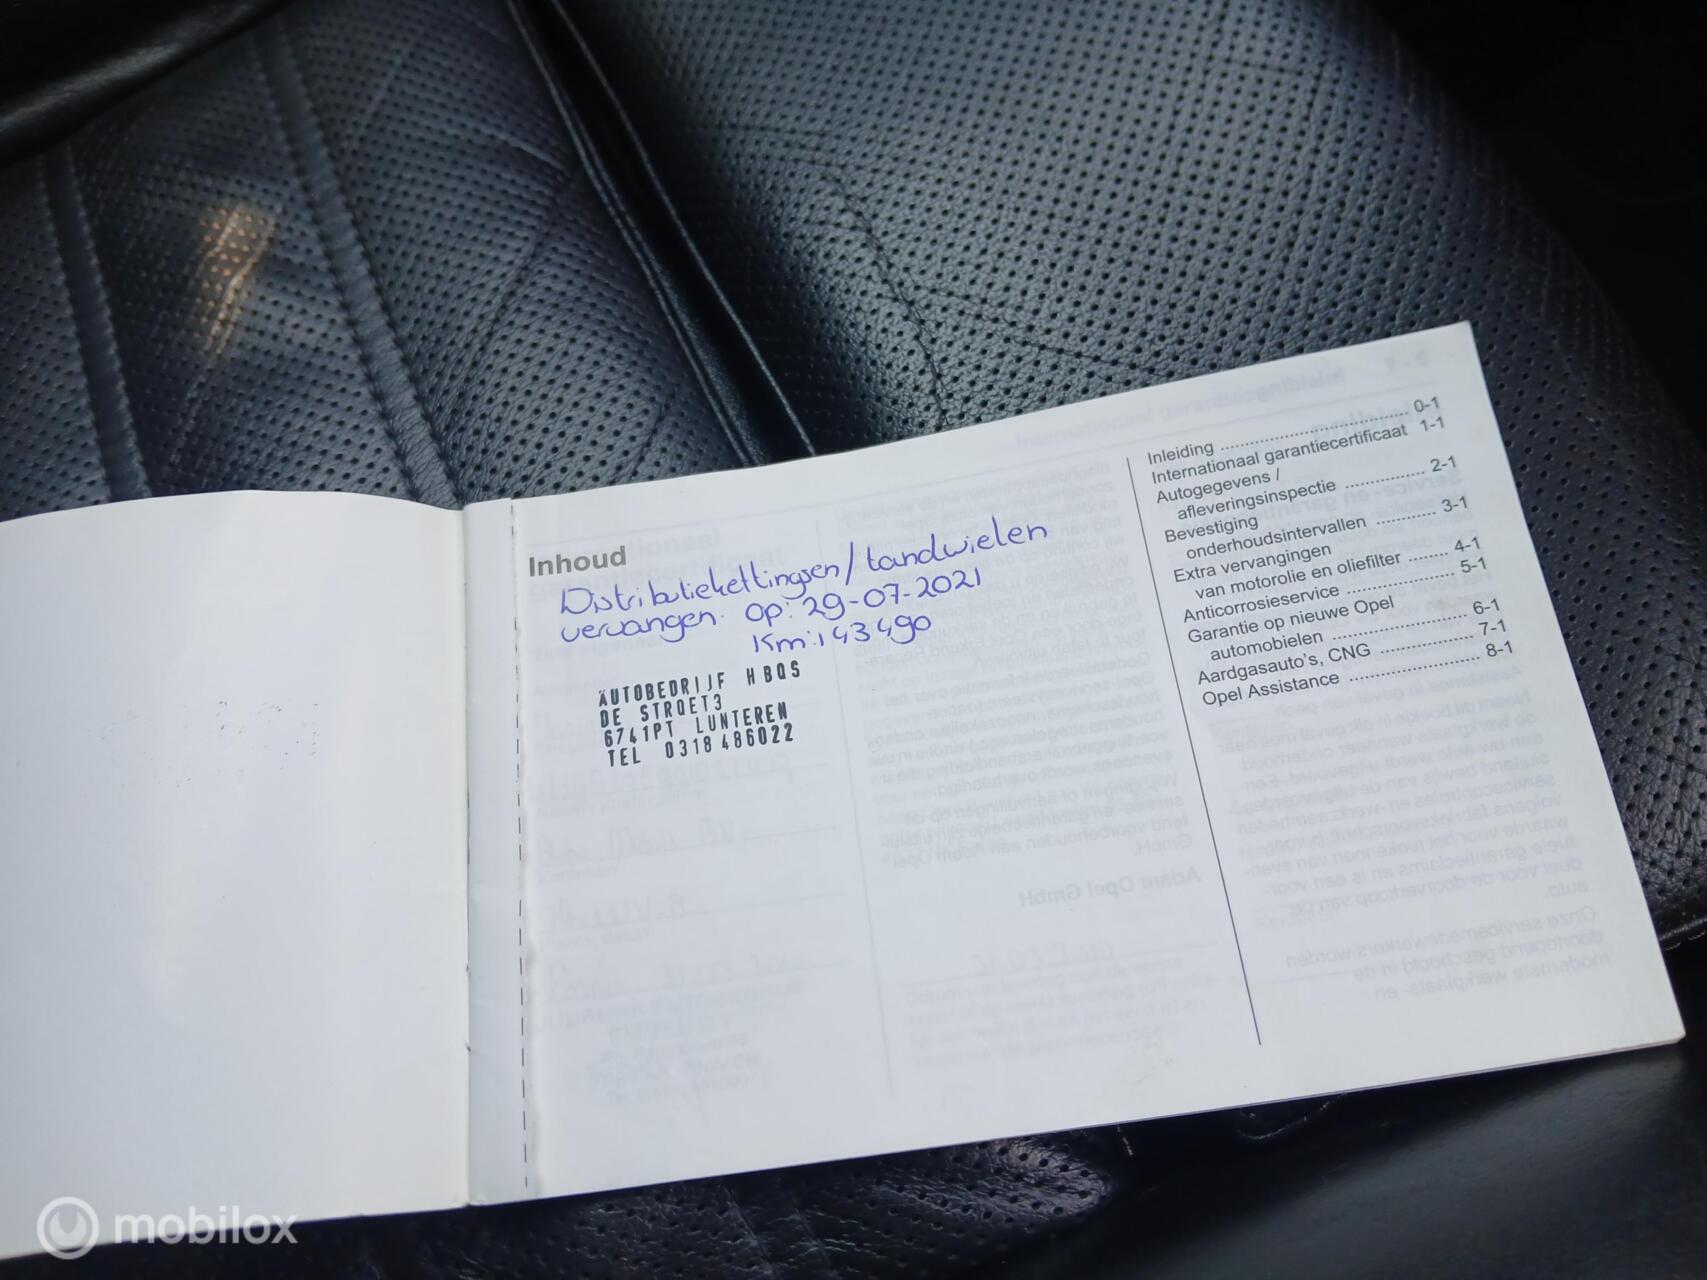 Inhoud
Distributiekettingen/tandwielen
vervangen. op: 29-07-2021
Km: 143490
AUTOBEDRIJF HBOS
DE STROET3
6741PT LUNTEREN
TEL 0318 486022
Inleiding ........ 0-1
Internationaal garantiecertificaat 1-1
Autogegevens /
afleveringsinspectie ........ 2-1
Bevestiging
onderhoudsintervallen ........ 3-1
Extra vervangingen
van motorolie en oliefilter ........ 4-1
Anticorrosieservice ........ 5-1
Garantie op nieuwe Opel
automobielen ........ 6-1
Aardgasauto's, CNG ........ 7-1
Opel Assistance ........ 8-1
mobilox